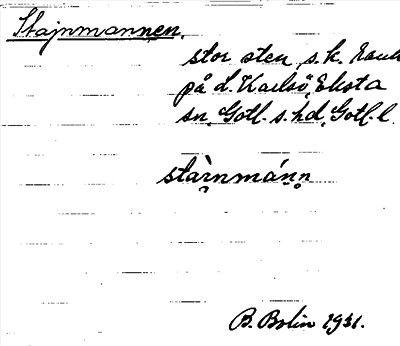 Stajnmannen,
stor sten, s.k. Rauk
på L. Karlsö, Eksta
sn, Gotl. s. hd, Gotl. l.
B. Bolin 1931.